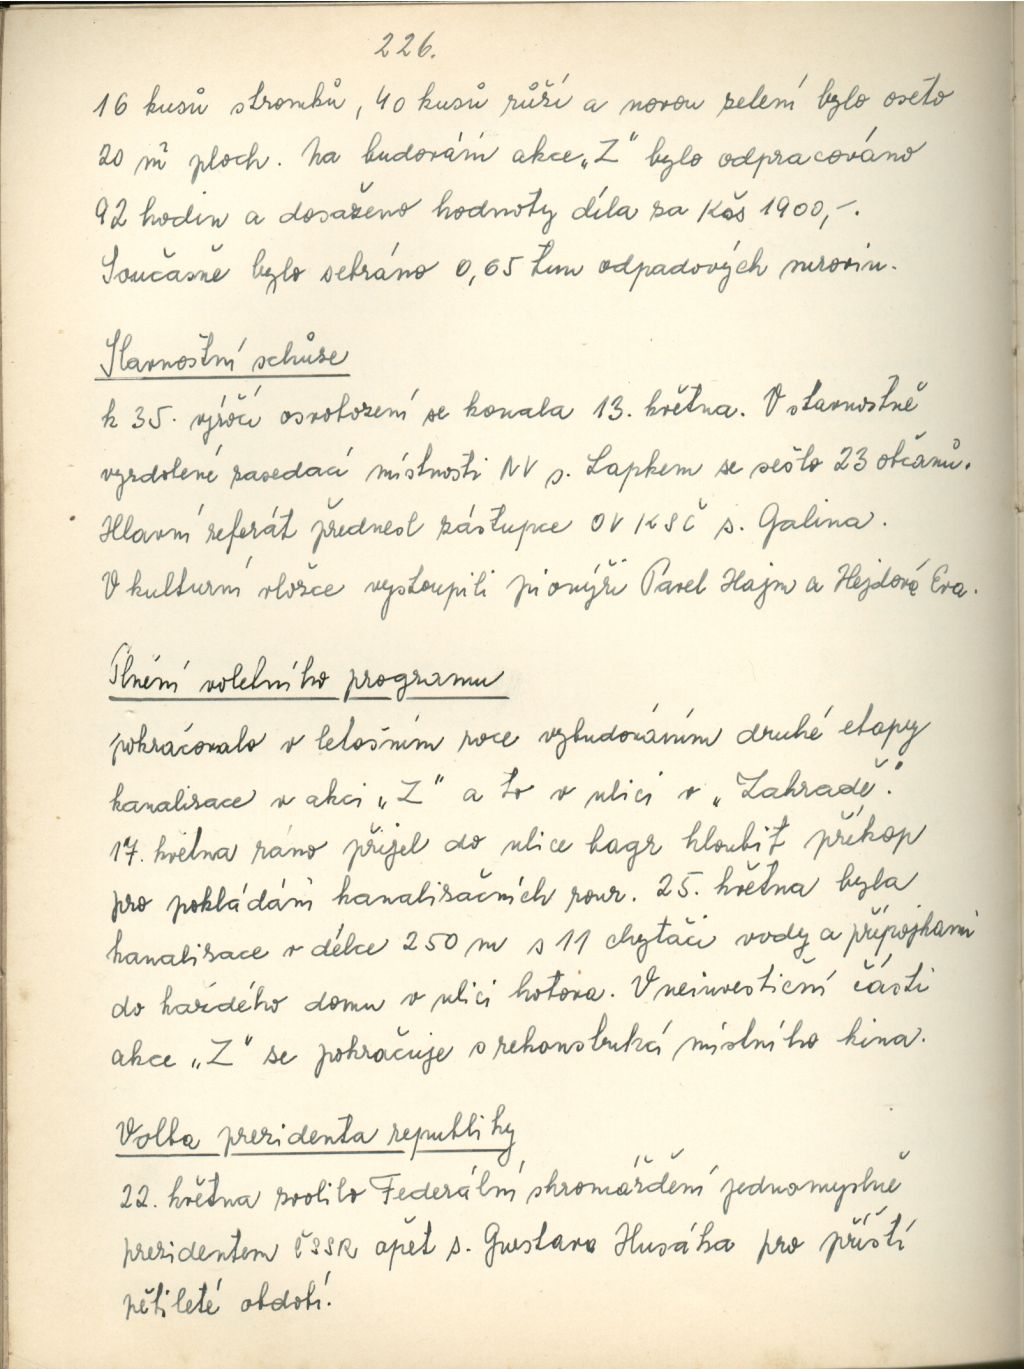 226.
16 kusů stromků, 40 kusů růží a novou zelení bylo oseto
20 m² ploch. Na budování akce „Z" bylo odpracováno
92 hodin a dosaženo hodnoty díla za Kčs 1900,-.
Současně bylo sebráno 0,65 tun odpadových surovin.
Slavnostní schůze
k 35. výročí osvobození se konala 13. května. V slavnostně
vyzdobené zasedací místnosti NV s. Lapkem se sešlo 23 občanů.
Hlavní referát přednesl zástupce OV KSČ s. Galina.
V kulturní vložce vystoupili pionýři Pavel Hajm a Hejdová Eva.
Plnění volebního programu
pokračovalo v letošním roce vybudováním druhé etapy
kanalisace v akci „Z" a to v ulici v „Zahradě".
17. května ráno přijel do ulice bagr hloubit příkop
pro pokládání kanalizačních rour. 25. května byla
kanalisace v délce 250 m s 11 chytači vody a přípojkami
do každého domu v ulici hotova. V neinvestiční části
akce „Z" se pokračuje s rekonstrukcí místního kina.
Volba prezidenta republiky
22. května zvolilo Federální shromáždění jednomyslně
prezidentem ČSSR opět s. Gustava Husáka pro příští
pětileté období.